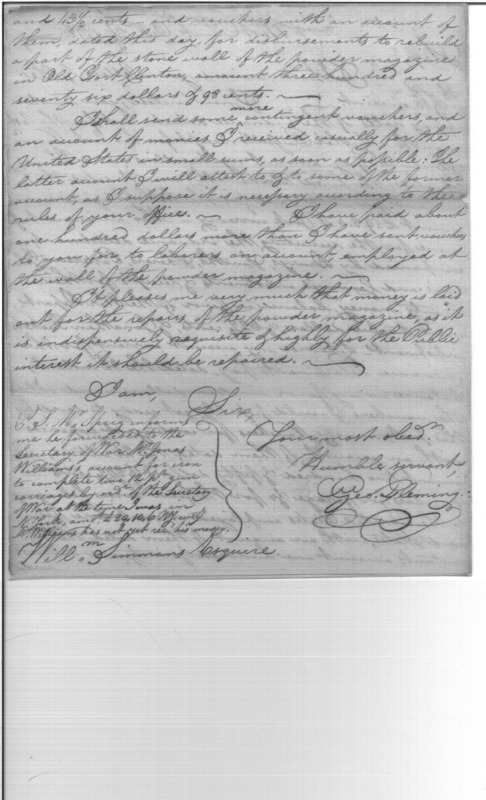 and 43½ cents — and vouchers with an account of
them, dated this day, for disbursements to rebuild
a part of the stone wall of the powder magazine
in Old Fort Clinton, amount three hundred and
seventy six dollars & 98 cents. —
I shall send some more contingent vouchers, and
an account of monies I received casually for the
United States in small sums, as soon as possible: The
latter account I will attest to & to some of the former
account, as I suppose it is necessary according to the
rules of your office. — I have paid about
one hundred dollars more than I have sent vouchers
to you for, to laborers on account employed at
the wall of the powder magazine. —
It pleases me very much that money is laid
out for the repairs of the powder magazine, as it
is indispensively requisite & highly for the Public
interest it should be repaired. —
I am,
Sir,
Your most obedt.
Humble servant,
Geo. Fleming.
P.S. Mr. informs
me he forwarded to the
Secretary of War Mr. Jonas
Williams's account for iron
to complete two 12 pr.
carriages by ordr. of the Secretary
of War at the time I was in
N York, amt. £29.10.6
Williams has not yet recd. his money.
Willm. Simmons Esquire